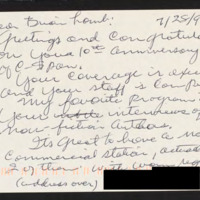 Dear Brian Lamb:
7/25/9
Greetings and Congratul
on your 10th anniversary
of C-Span.
Your coverage is exce
and your staff is comp
My favorite program
your interviews of
non-fiction authors.
Its great to have a no
Commercial station, actual
2 of them, with
(address over)